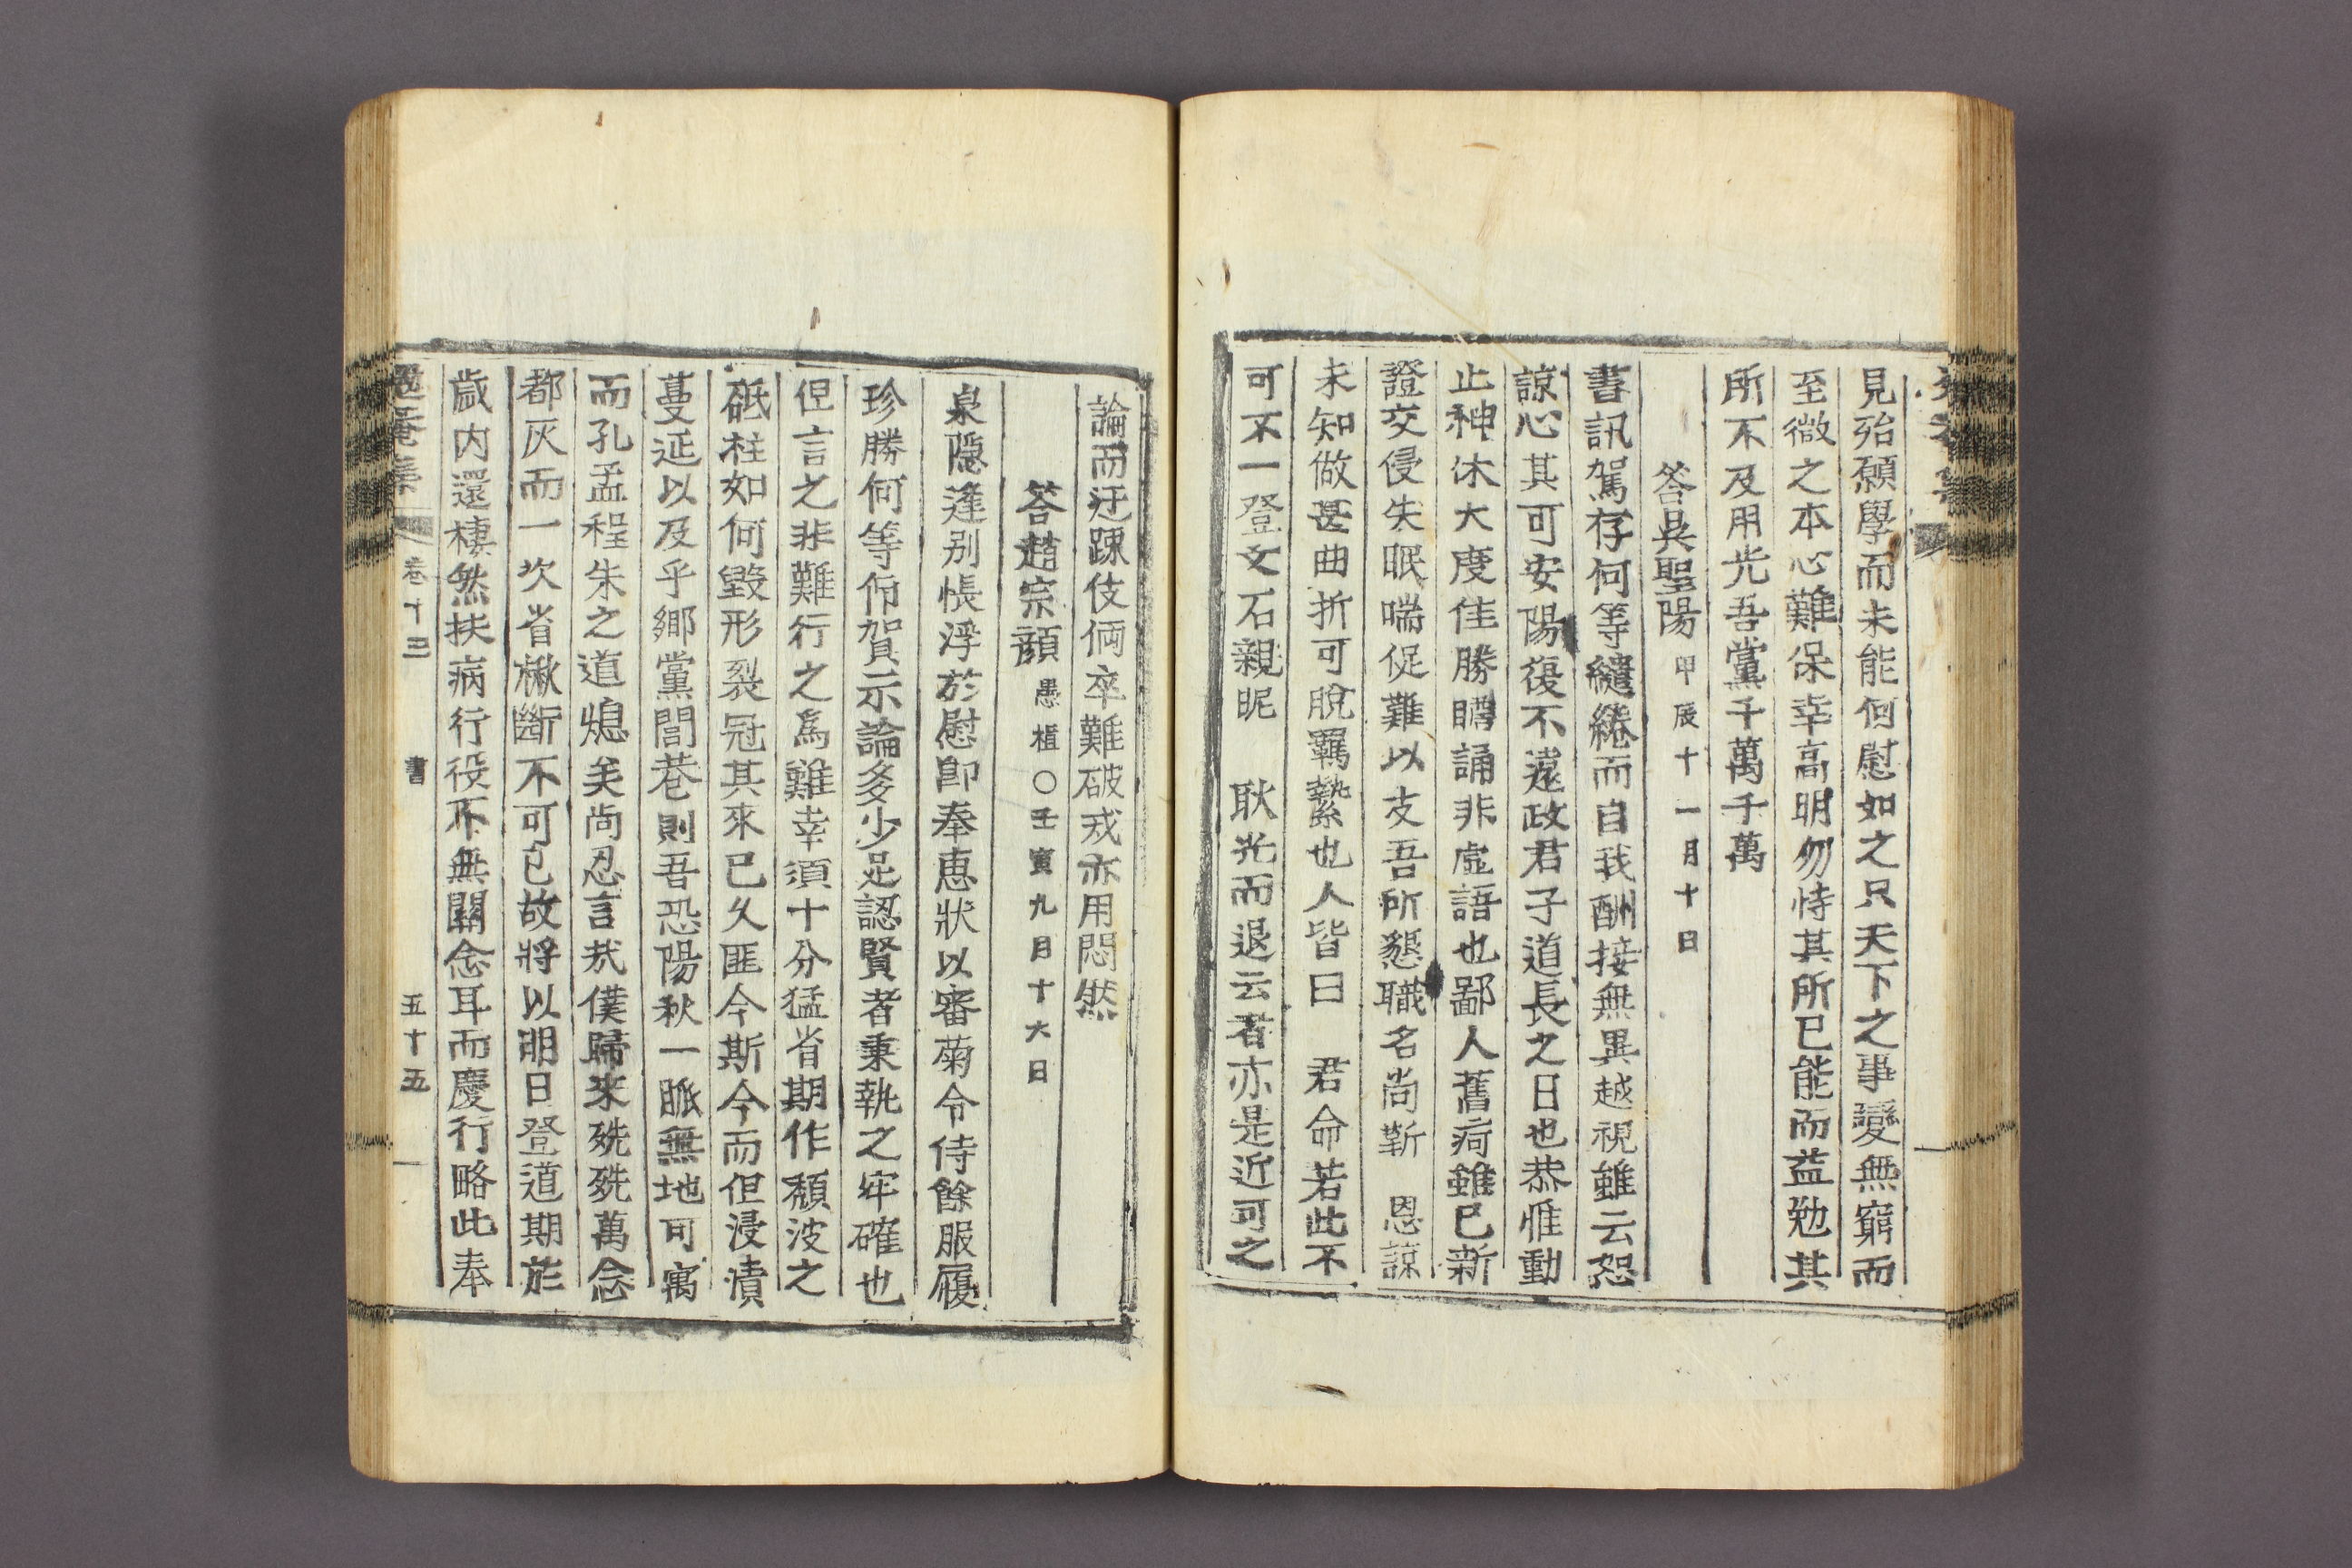 見殆願學而未能何慰如之只天下之事變無窮而
至微之本心難保幸高明勿恃其所已能而益勉其
所不及用光吾黨千萬千萬
答吳聖陽 甲辰十一月十日
書訊駕存何等繾綣而自我酬接無異越視雖云恕
諒心其可安陽復不遠政君子道長之日也恭惟動
止神休大度佳勝贃誦非虛語也鄙人舊疴雖已新
證交侵失眠喘促難以支吾所懇職名尚靳 恩諒
未知做甚曲折可脫羈縶也人皆曰 君命若此不
可不一登文石親昵 耿光而退云者亦是近可之
論而迂踈伎倆卒難破戒亦用悶然
答趙宗顔 愚植○壬寅九月十六日
泉隱逢別悵浮於慰卽奉惠狀以審菊令侍餘服履
珍勝何等仰賀示論多少足認賢者秉執之牢確也
但言之非難行之爲難幸須十分猛省期作頹波之
砥柱如何毀形裂冠其來已久匪今斯今而但浸漬
蔓延以及乎鄉黨閭巷則吾恐陽秋一脈無地可寓
而孔孟程朱之道熄矣尚忍言哉僕歸來兟兟萬念
都灰而一次省楸斷不可已故將以明日登道期於
歲內還棲然扶病行役不無關念耳而慶行略此奉
卷十三 書 五十五